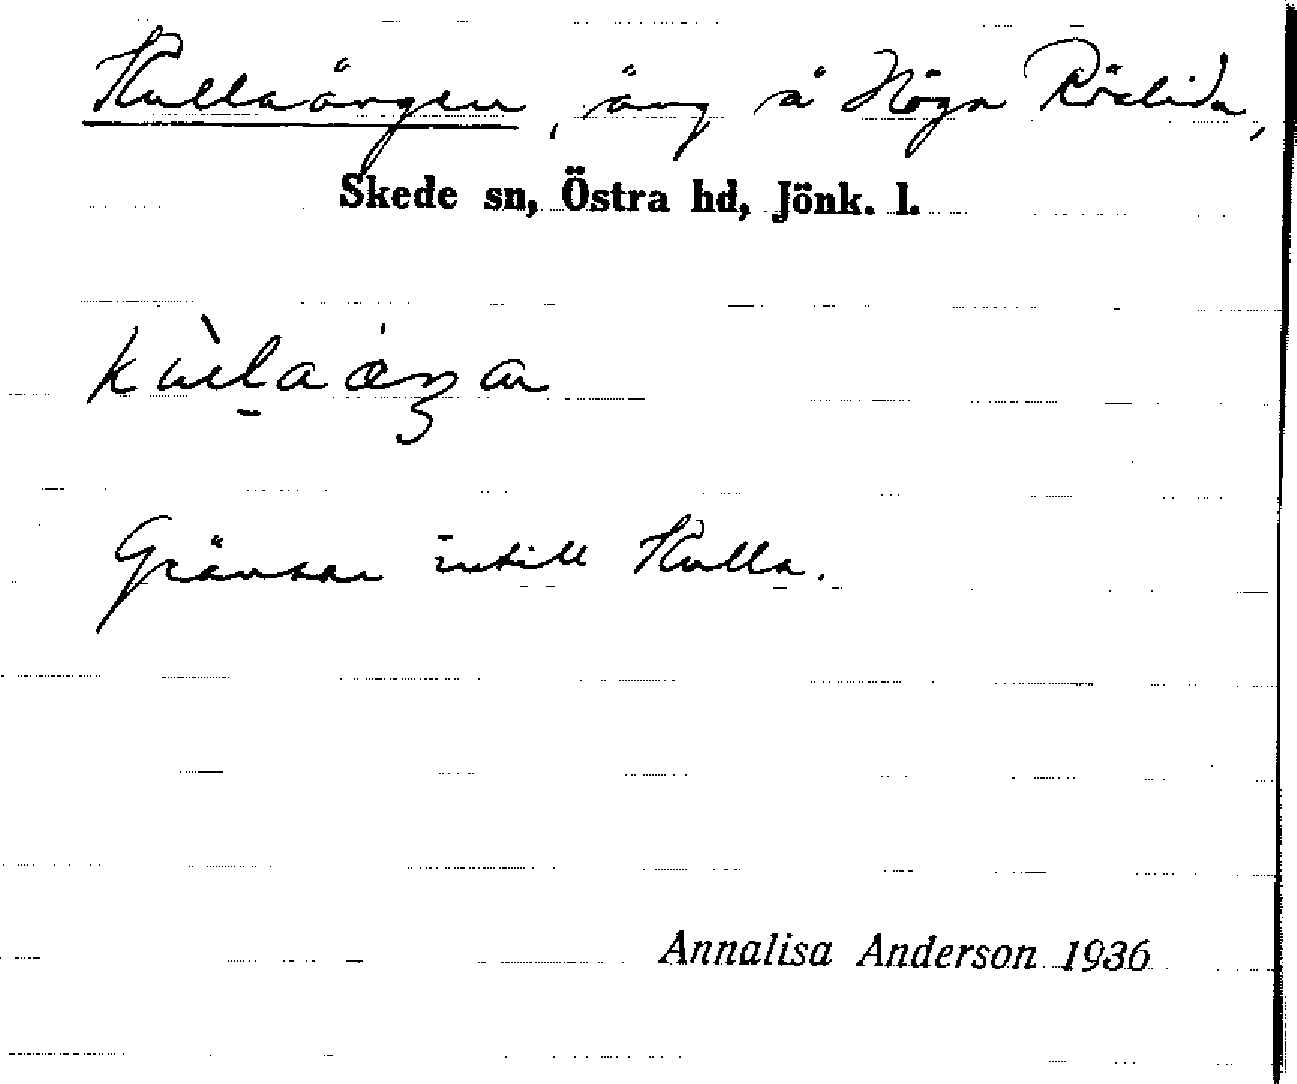 Kullaängen, äng å Höga Röslida,
Skede sn, Östra hd, Jönk. l.
Gränsar intill Kulla.
Annalisa Anderson 1936